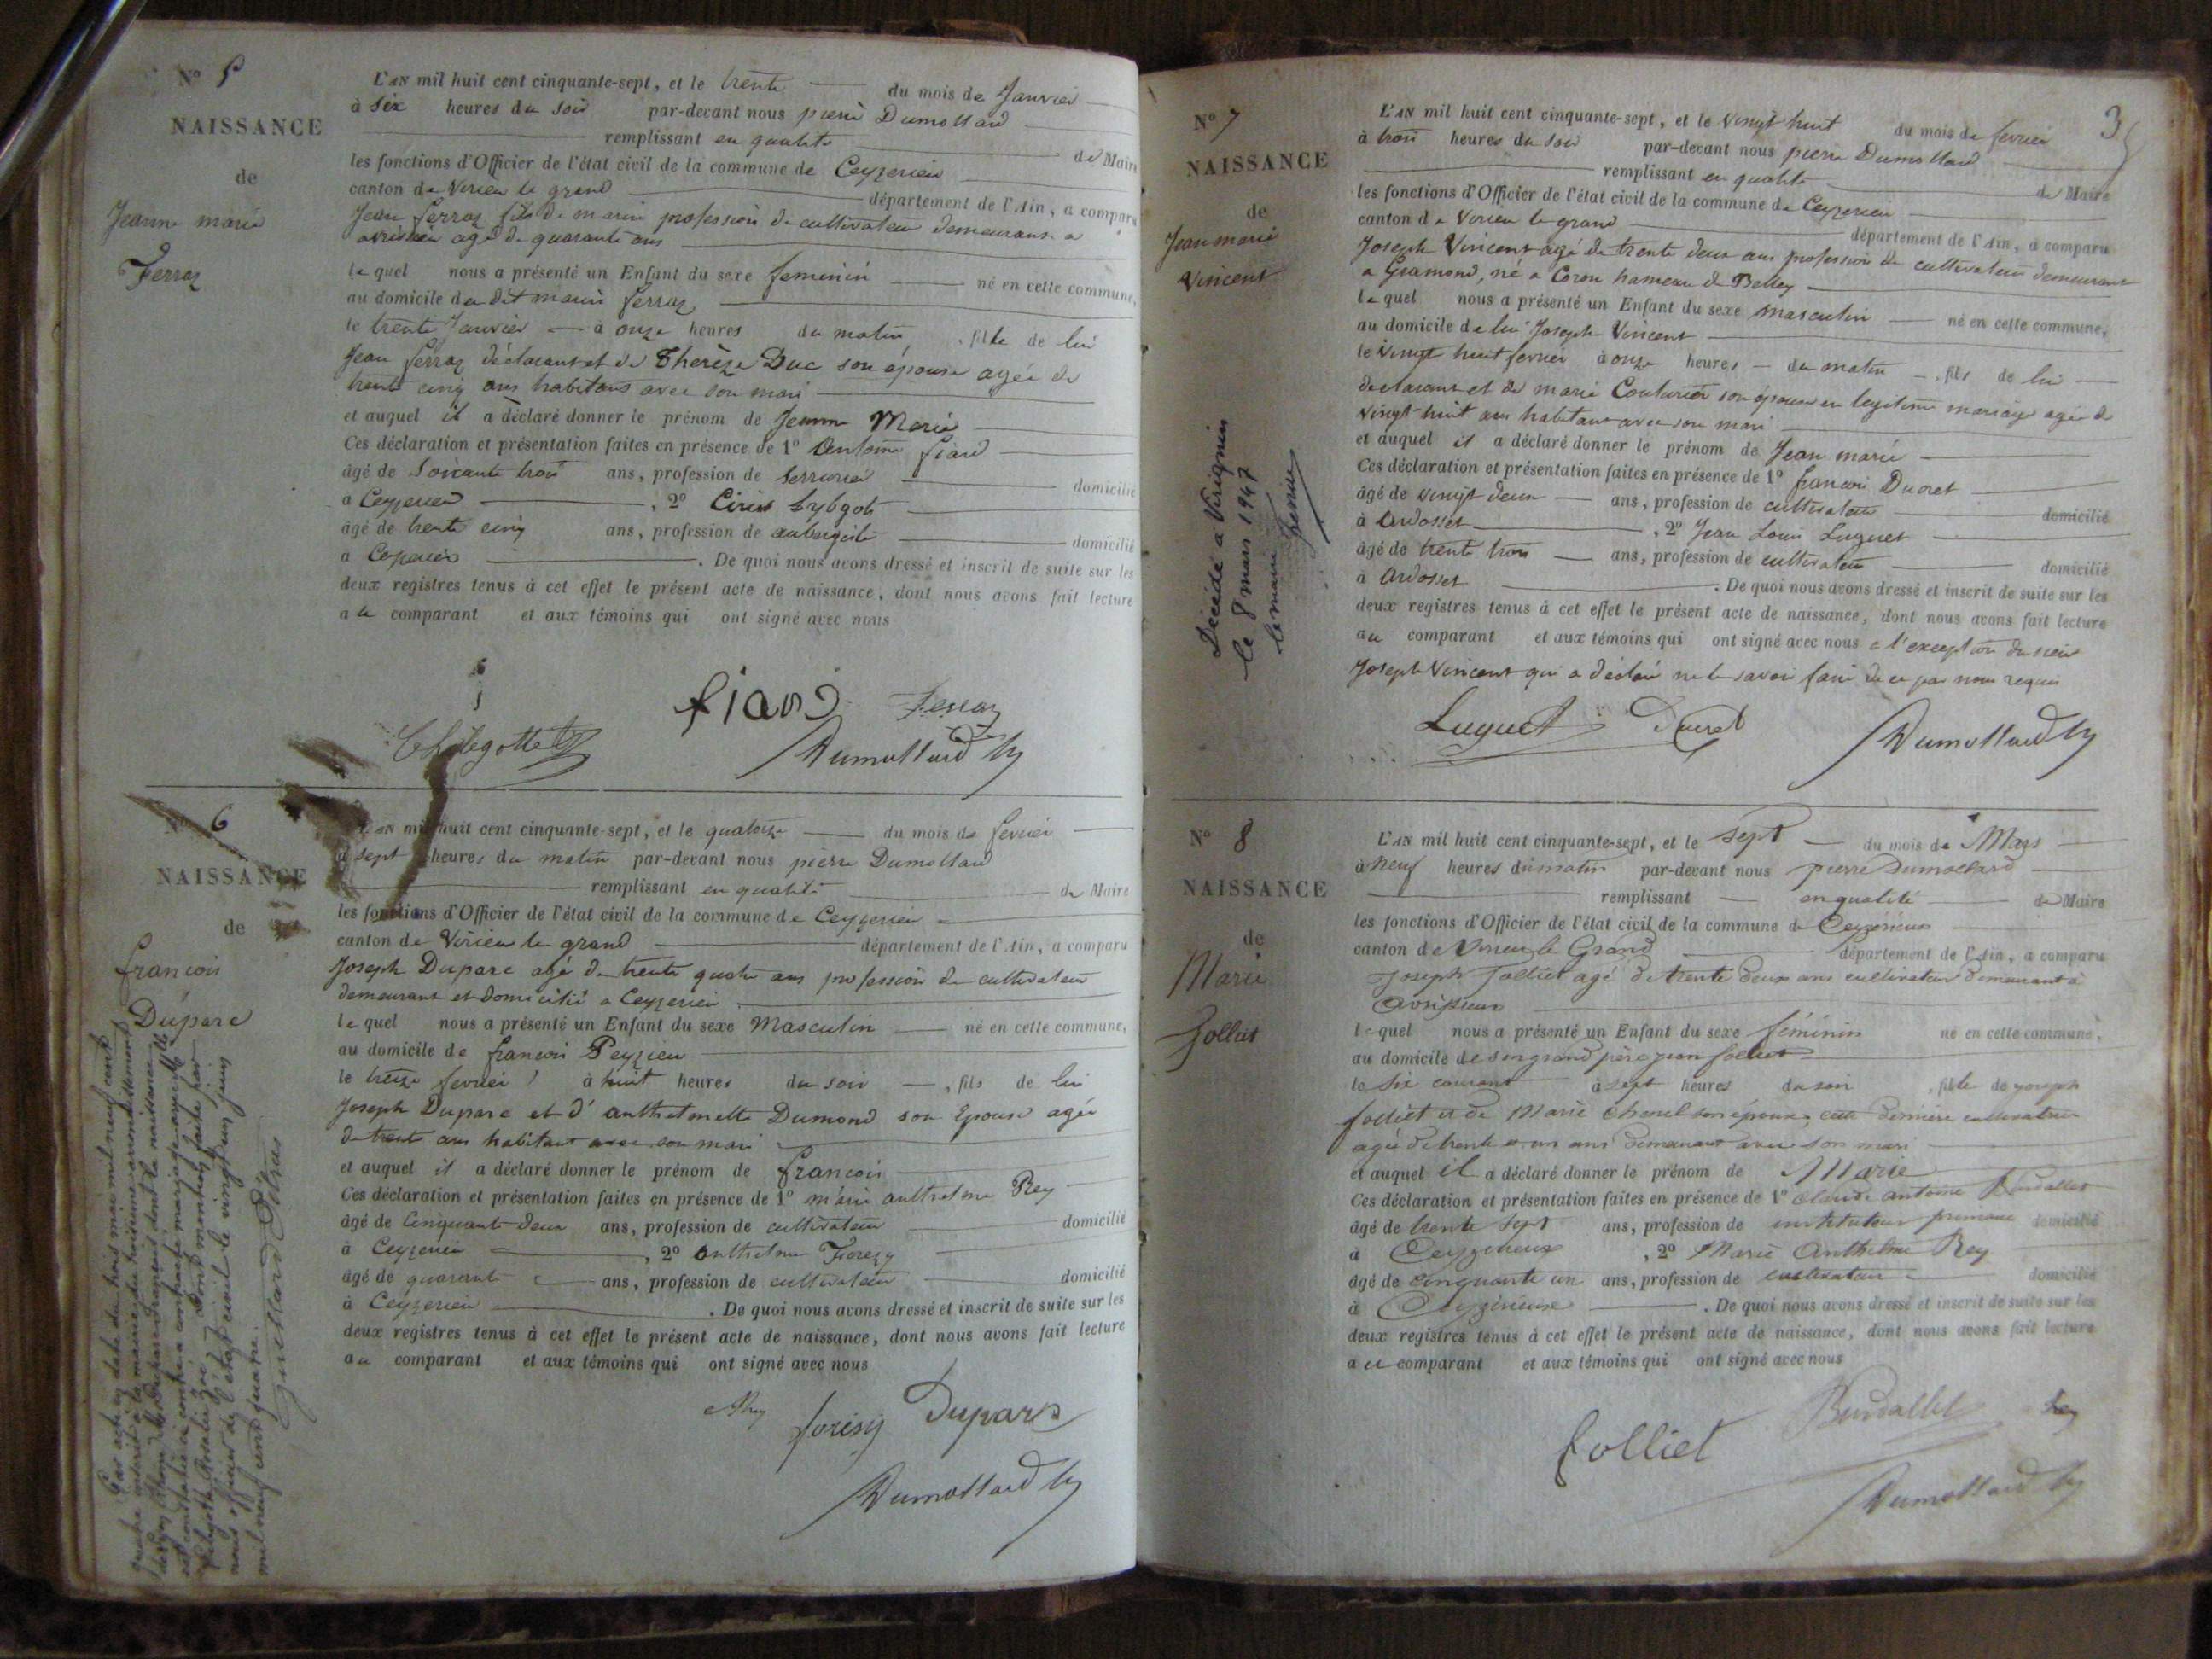 N° 5
NAISSANCE
de
Jeanne marie
Ferraz
L'AN mil huit cent cinquante-sept, et le trente du mois de Janvier
à six heures du soir par-devant nous pierre Dumollard
remplissant en qualité de Maire
les fonctions d'Officier de l'état civil de la commune de Ceyzerieu
canton de Virieu le grand département de l'Ain, a comparu
Jean ferraz fils de marin profession de cultivateur demeurant a
avrissieu agé de quarante ans
lequel nous a présenté un Enfant du sexe feminin né en cette commune,
au domicile du dit marin ferraz
le trente Janvier à onze heures du matin, fille de lui
Jean ferraz déclarant et de Thérèze Duc son épouse agée de
trente cinq ans habitant avec son mari
et auquel il a déclaré donner le prénom de Jeanne Marie
Ces déclaration et présentation faites en présence de 1° Antoine fiard
âgé de soixante trois ans, profession de serrurier domicilié
à Ceyzerieu, 2°
âgé de trente cinq ans, profession de aubergiste domicilié
à Ceyzerieu. De quoi nous avons dressé et inscrit de suite sur les
deux registres tenus à cet effet le présent acte de naissance, dont nous avons fait lecture
au comparant et aux témoins qui ont signé avec nous
fiard Ferraz
Dumollard
N° 6
NAISSANCE
de
francois
Dupare
L'AN mil huit cent cinquante-sept, et le quatorze du mois de fevrier
à sept heures du matin par-devant nous pierre Dumollard
remplissant en qualité de Maire
les fonctions d'Officier de l'état civil de la commune de Ceyzerieu
canton de Virieu le grand département de l'Ain, a comparu
Joseph Dupare agé de trente quatre ans profession de cultivateur
demeurant et domicilié a Ceyzerieu
lequel nous a présenté un Enfant du sexe Masculin né en cette commune,
au domicile de francois Peyzieu
le treize fevrier à huit heures du soir, fils de lui
Joseph Dupare et d'anthelmette Dumond son Epouse agée
de trente ans habitant avec son mari
et auquel il a déclaré donner le prénom de francois
Ces déclaration et présentation faites en présence de 1° marie anthelme Rey
âgé de cinquante deux ans, profession de cultivateur domicilié
à Ceyzerieu, 2° anthelme
âgé de quarante ans, profession de cultivateur domicilié
à Ceyzerieu. De quoi nous avons dressé et inscrit de suite sur les
deux registres tenus à cet effet le présent acte de naissance, dont nous avons fait lecture
au comparant et aux témoins qui ont signé avec nous
Dupare
Dumollard
Par acte en date du trois mai mil neuf cent
quatre inscrit à la mairie du troisième arrondissement
de Lyon
mil neuf cent quatre.
3
N° 7
NAISSANCE
de
Jean marie
Vincent
Décédé à Virignin
le 8 mars 1947
le maire
L'AN mil huit cent cinquante-sept, et le vingt huit du mois de fevrier
à trois heures du soir par-devant nous pierre Dumollard
remplissant en qualité de Maire
les fonctions d'Officier de l'état civil de la commune de Ceyzerieu
canton de Virieu le grand département de l'Ain, a comparu
Joseph Vincent agé de trente deux ans profession de cultivateur demeurant
a Gramond, né a Coron hameau de Belley
lequel nous a présenté un Enfant du sexe masculin né en cette commune,
au domicile de lui Joseph Vincent
le vingt huit fevrier à onze heures du matin, fils de lui
declarant et de marie Couturier son épouse en legitime mariage agée de
vingt huit ans habitant avec son mari
et auquel il a déclaré donner le prénom de Jean marie
Ces déclaration et présentation faites en présence de 1° francois Ducret
âgé de vingt deux ans, profession de cultivateur domicilié
à Ardosset, 2° Jean Louis Luguet
âgé de trente trois ans, profession de cultivateur domicilié
à Ardosset. De quoi nous avons dressé et inscrit de suite sur les
deux registres tenus à cet effet le présent acte de naissance, dont nous avons fait lecture
au comparant et aux témoins qui ont signé avec nous a l'exception du sieur
Joseph Vincent qui a déclaré ne le savoir faire de ce par nous requis
Luguet Ducret
Dumollard
N° 8
NAISSANCE
de
Marie
Folliet
L'AN mil huit cent cinquante-sept, et le sept du mois de Mars
à neuf heures du matin par-devant nous pierre Dumollard
remplissant en qualité de Maire
les fonctions d'Officier de l'état civil de la commune de Ceyzérieux
canton de Virieu le Grand département de l'Ain, a comparu
Joseph folliet agé de trente deux ans cultivateur demeurant à
Avrissieux
lequel nous a présenté un Enfant du sexe féminin né en cette commune,
au domicile de son grand père jean folliet
le six courant à sept heures du soir, fille de joseph
folliet et de Marie son épouse, cette dernière cultivatrice
agée de trente et un ans demeurant avec son mari
et auquel il a déclaré donner le prénom de Marie
Ces déclaration et présentation faites en présence de 1° claude antoine Burdallet
âgé de trente sept ans, profession de instituteur primaire domicilié
à Ceyzérieux, 2° Marie Anthelme Rey
âgé de cinquante un ans, profession de cultivateur domicilié
à Ceyzérieux. De quoi nous avons dressé et inscrit de suite sur les
deux registres tenus à cet effet le présent acte de naissance, dont nous avons fait lecture
au comparant et aux témoins qui ont signé avec nous
folliet Burdallet Rey
Dumollard